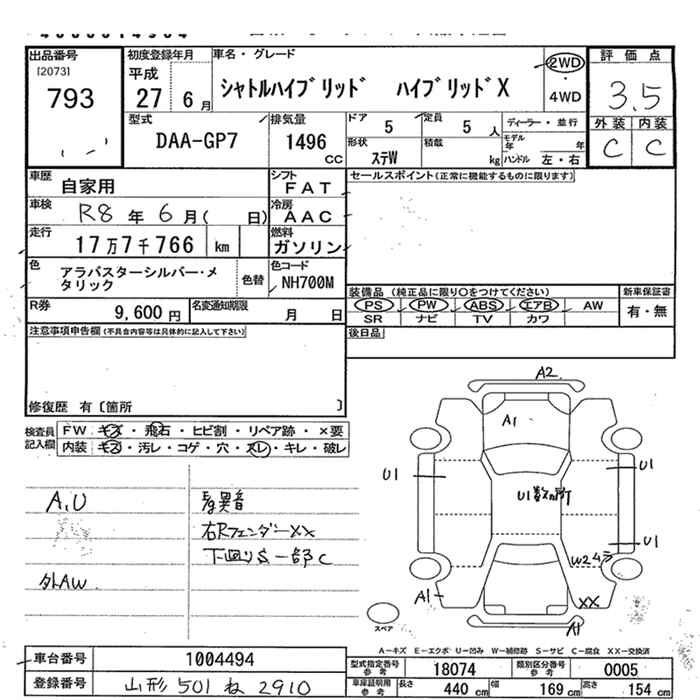 出品番号
[2073]
793
初度登録年月
平成
27 6月
車名・グレード
シャトルハイブリッド ハイブリッドX
2WD
4WD
評価点
3.5
外装 内装
C C
型式
DAA-GP7
排気量
1496 cc
ドア
5
定員
5 人
形状
ステW
積載
kg
ディーラー・並行
モデル年 年
ハンドル 左・右
車歴
自家用
シフト
FAT
セールスポイント(正常に機能するものに限ります)
車検
R8年 6月( 日)
冷房
AAC
走行
17万7千766 km
燃料
ガソリン
色
アラバスターシルバー・メタリック
色替
色コード
NH700M
装備品 (純正品に限り○をつけてください)
新車保証書
PS PW ABS エアB AW
有・無
SR ナビ TV カワ
R券
9,600 円
名変通知期限
月 日
後日品
注意事項申告欄(不具合内容等は具体的に記入して下さい)
修復歴 有〔箇所 〕
検査員記入欄
FW キズ・飛石・ヒビ割・リペア跡・×要
内装 キズ・汚レ・コゲ・穴・スレ・キレ・破レ
A2
A1
U1
U1
U1数ヶ所
U1
W2ムラ
A1
XX
A1
スペア
A,U
外AW
Eg異音
右RフェンダーXX
下廻りS一部C
A-キズ E-エクボ U-凹み W-補修跡 S-サビ C-腐食 XX-交換済
車台番号
1004494
登録番号
山形 501 ね 2910
型式指定番号
参考
18074
類別区分番号
参考
0005
車庫証明用
参考
長さ
440 cm
幅
169 cm
高さ
154 cm